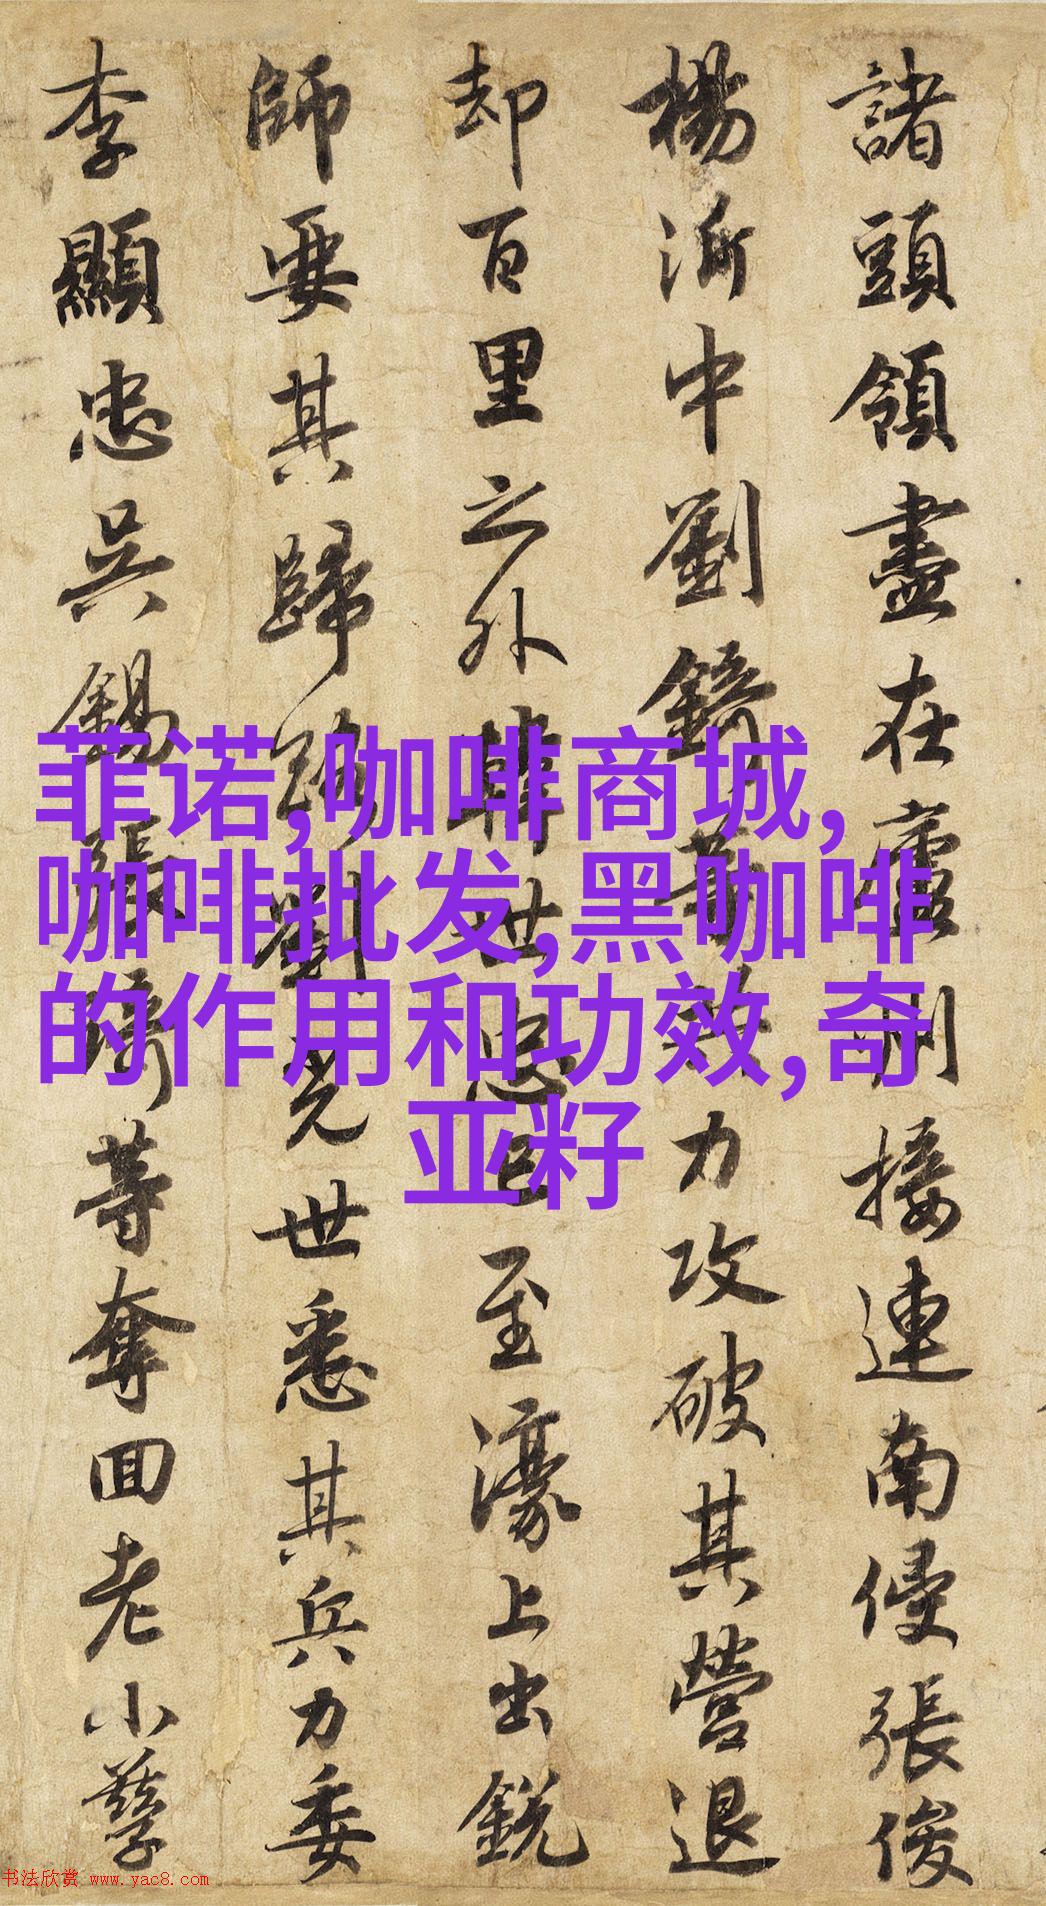 諸頭領盡在廬州接連南侵張俊
楊沂中劉錡等力攻破其營退
却百里之外韓世忠已至濠上出銳
師要其歸路劉光世悉其兵力委
李顯忠吳錫張琦等奪回老小孳
菲诺,咖啡商城,
咖啡批发,黑咖啡
的作用和功效,奇
亚籽
书法欣赏 www.yac8.com